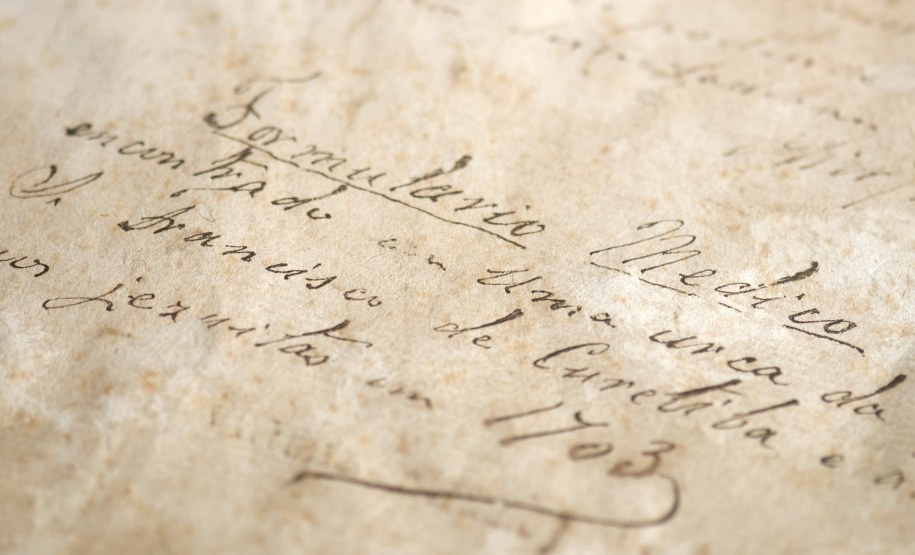 Formulario Medico
encontrado em uma urca da
S. Francisco de Curetiba e
jezuitas em 1703